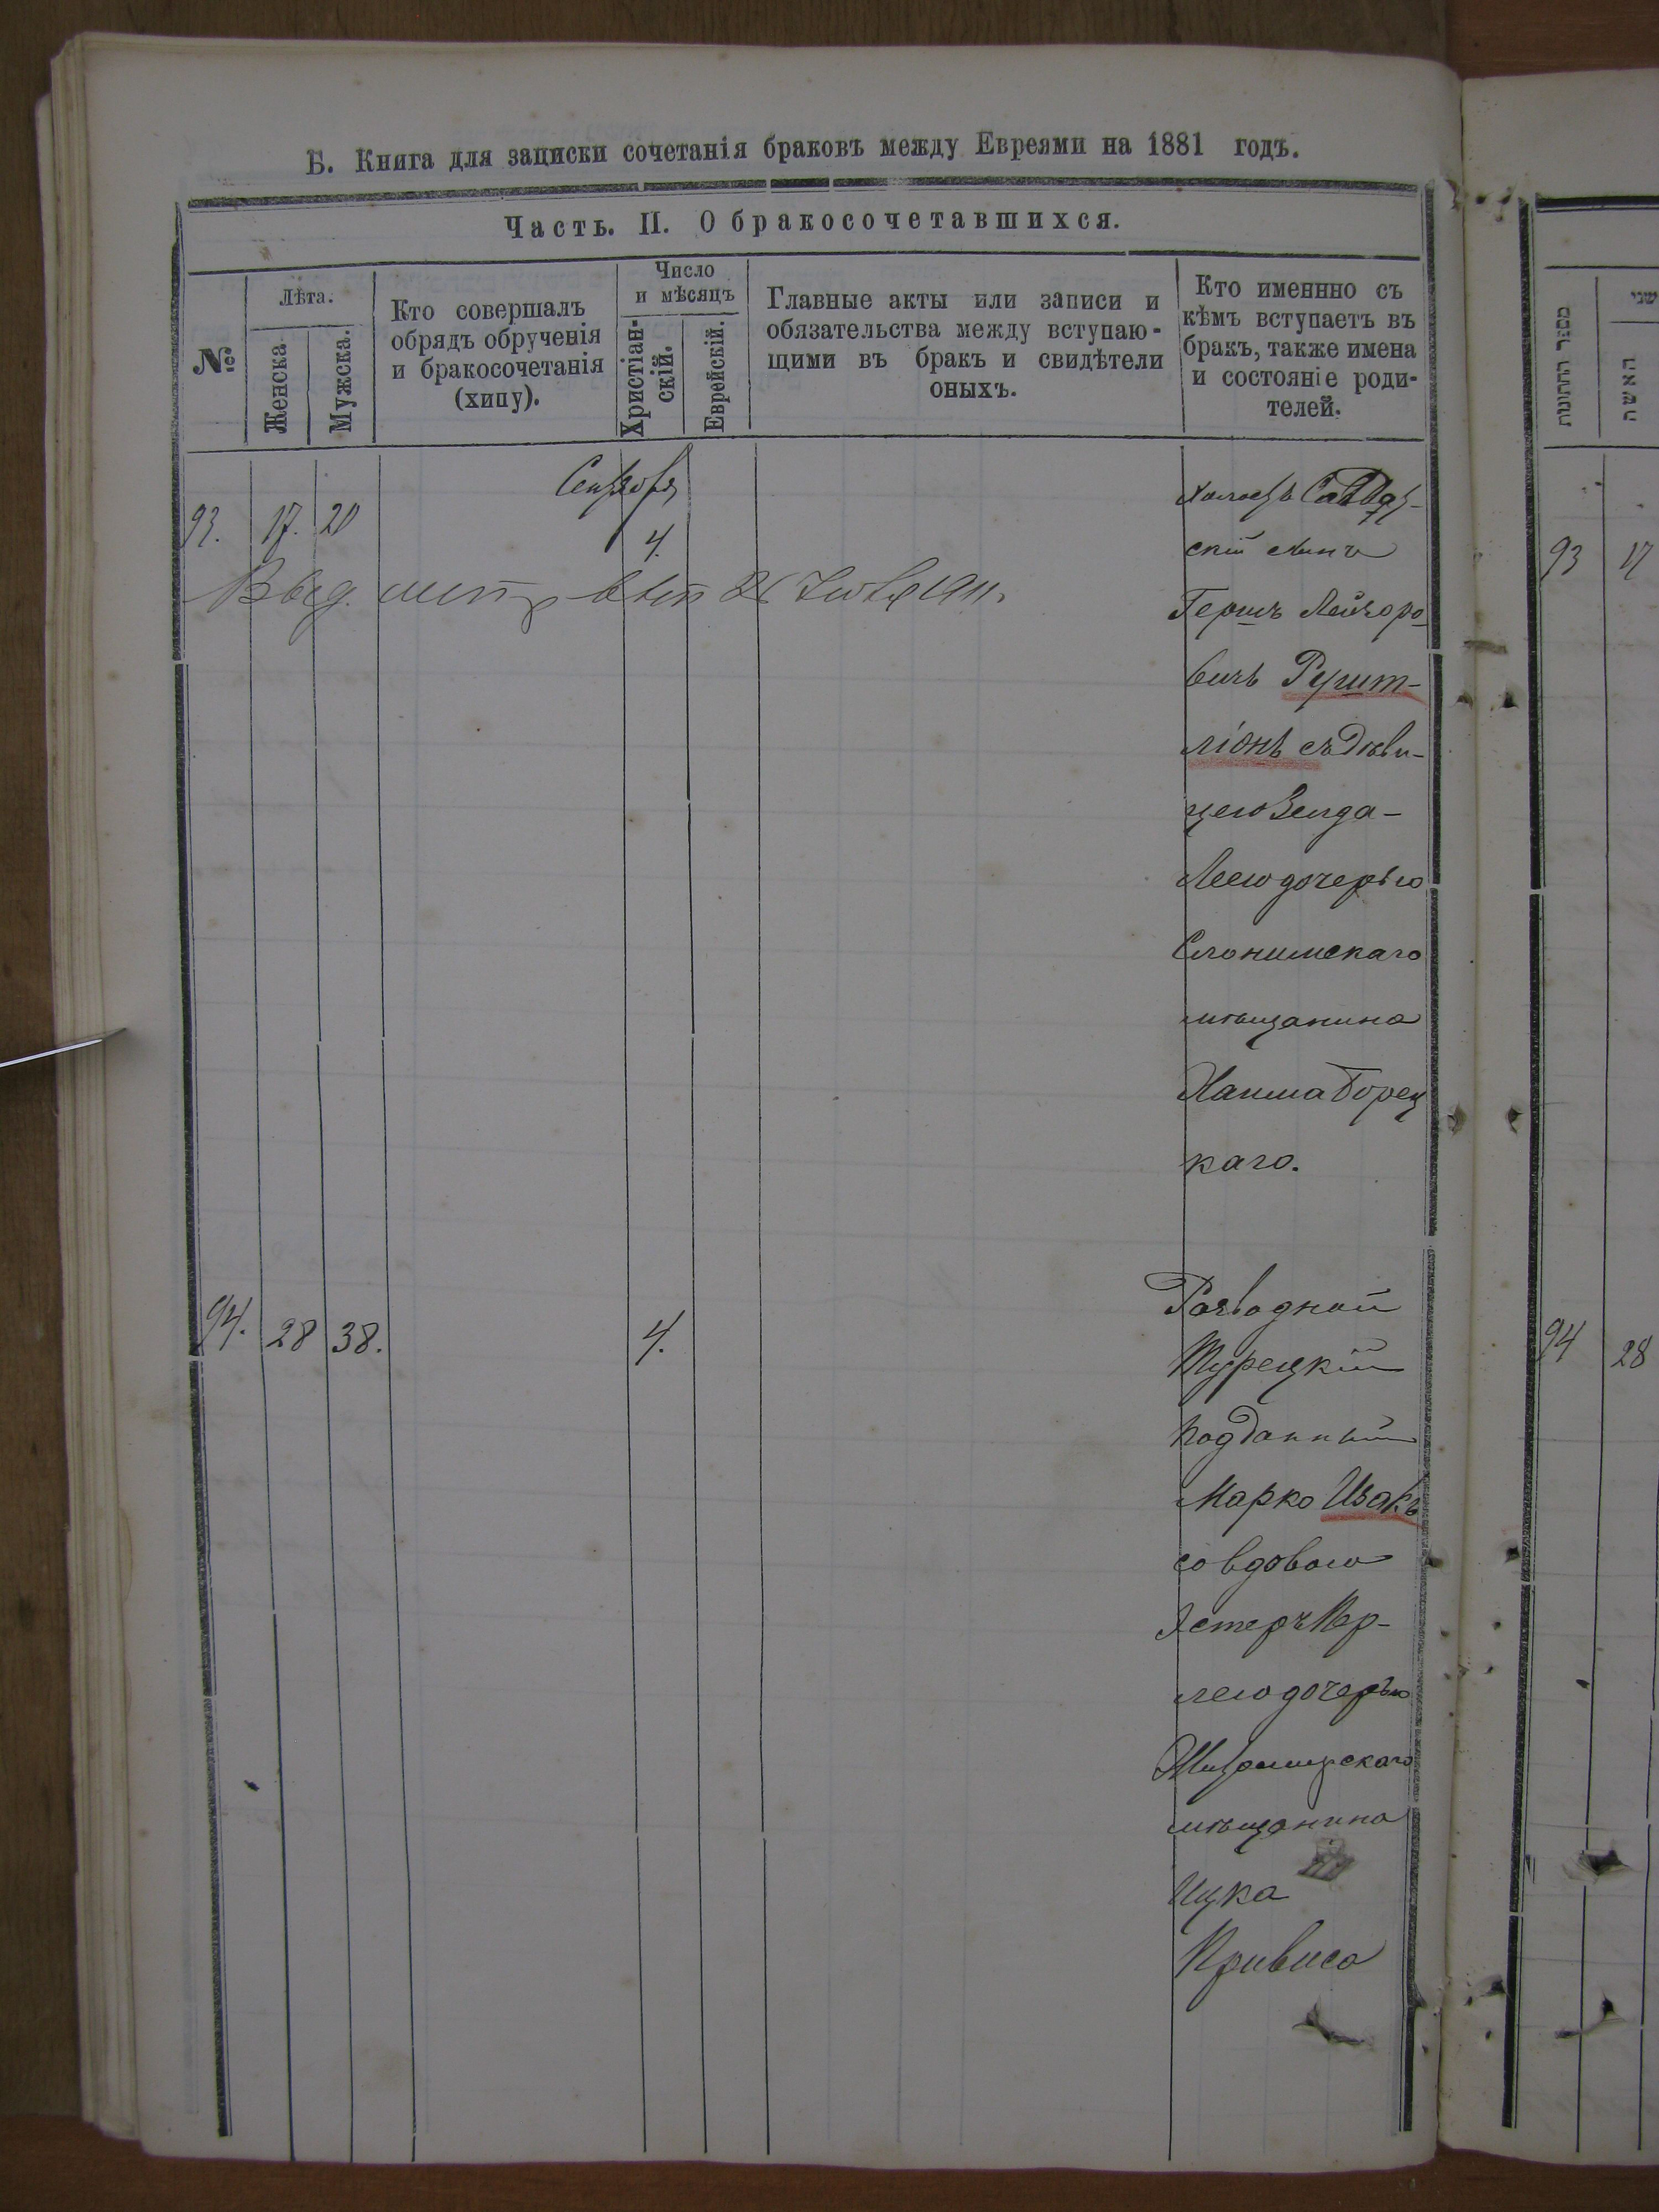 Б. Книга для записки сочетанія браковъ между Евреями на 1881 годъ.
Часть. II. О бракосочетавшихся.
№
Лѣта.
Женска.
Мужска.
Кто совершалъ
обрядъ обрученія
и бракосочетанія
(хипу).
Число
и мѣсяцъ
Христіан-
скій.
Еврейскій.
Главные акты или записи и
обязательства между вступаю-
щими въ бракъ и свидѣтели
оныхъ.
Кто именнно съ
кѣмъ вступаетъ въ
бракъ, также имена
и состояніе роди-
телей.
Сентября
93. 17. 20
4.
Выд.
1911
скій
Гершъ Лейзоро
вичъ Рушт-
ліонъ съ Дѣви-
цею Зелда-
Леею дочерью
Слонимскаго
мѣщанина
Хаима Борец
каго.
94. 28 38.
4.
Разводной
Турецкій
подданный
Марко Изакъ
со вдовою
Эстеръ Пер-
лею дочерью
Житомирскаго
мѣщанина
Ицка
Кривиса
מספר החתונות
שני
האשה
93 17
94 28